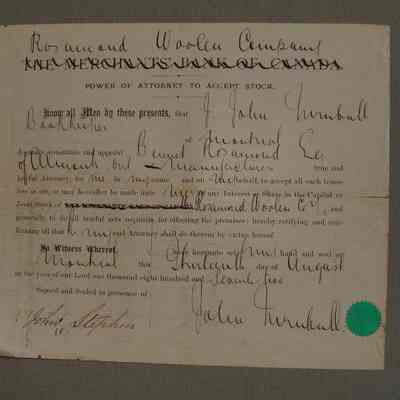 Rosamond Woolen Company
THE MERCHANTS BANK OF CANADA
POWER OF ATTORNEY TO ACCEPT STOCK.
Know all Men by these presents, that I John Turnbull
Bookkeeper of Montreal
do make constitute and appoint Bennett Rosamond Esq
of Almonte Ont Manufacturer true and
lawful Attorney, for me in my name and on my behalf, to accept all such trans-
fers as are, or may hereafter be made unto me of any Interest or Share in the Capital or
Joint Stock of Rosamond Woolen Coy, and
generally, to do all lawful acts requisite for effecting the premises; hereby ratifying and con-
firming all that my said Attorney shall do therein by virtue hereof
In Witness Whereof, I have hereunto set my hand and seal at
Montreal this Thirteenth day of August
in the year of our Lord one thousand eight hundred and Seventy five
Signed and Sealed in presence of
John Stephen
John Turnbull